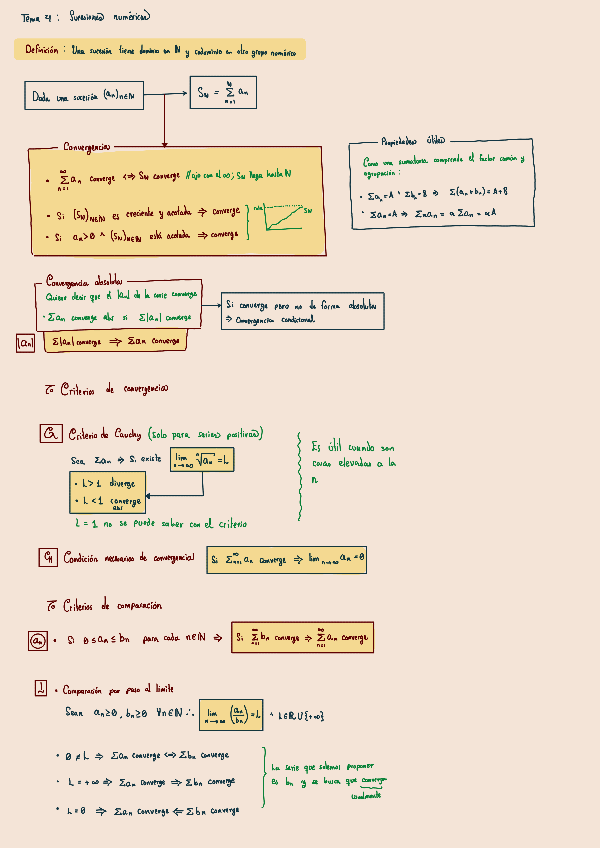 Tema 4: Sucesiones numéricas
Definición: Una sucesión tiene dominio en N y codominio en otro grupo numérico
Dada una sucesión (aₙ)n∈N
S_N = Σ_{n=1}^{N} aₙ
Convergencia
• Σ_{n=1}^{∞} aₙ converge ⟺ S_N converge // ojo con el ∞; S_N llega hasta N
• Si (S_N)N∈N es creciente y acotada ⇒ converge
• Si aₙ>0 ^ (S_N)N∈N está acotada ⇒ converge
S_N
Propiedades útiles
Como una sumatoria comprende el factor común y
agrupación:
• Σaₙ=A ^ Σbₙ=B ⇒ Σ(aₙ+bₙ)=A+B
• Σaₙ=A ⇒ Σαaₙ = αΣaₙ = αA
Convergencia absoluta
Quiere decir que el |aₙ| de la serie converge
• Σaₙ converge abs si Σ|aₙ| converge
|aₙ|
Σ|aₙ| converge ⇒ Σaₙ converge
Si converge pero no de forma absoluta
⇒ Convergencia condicional
Criterios de convergencia
Criterio de Cauchy (solo para series positivas)
Sea Σaₙ ⇒ Si existe lim_{n→∞} ⁿ√aₙ = L
• L>1 diverge
• L<1 converge
abs
L=1 no se puede saber con el criterio
Es útil cuando son
cosas elevadas a la
n
Condición necesaria de convergencia
Si Σ_{n=1}^{∞} aₙ converge ⇒ lim_{n→∞} aₙ=0
Criterios de comparación
aₙ
• Si 0≤aₙ≤bₙ para cada n∈N ⇒
Si Σ_{n=1}^{∞} bₙ converge ⇒ Σ_{n=1}^{∞} aₙ converge
L
• Comparación por paso al límite
Sean aₙ≥0, bₙ≥0 ∀n∈N ∴ lim_{n→∞} (aₙ/bₙ)=L ^ L∈R∪{+∞}
• 0≠L ⇒ Σaₙ converge ⟺ Σbₙ converge
• L=+∞ ⇒ Σaₙ converge ⇒ Σbₙ converge
• L=0 ⇒ Σaₙ converge ⇐ Σbₙ converge
La serie que solemos proponer
es bₙ y se busca que converja